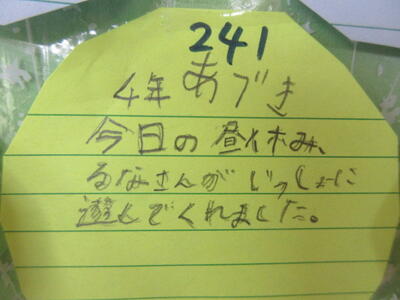 241
4年 あづき
今日の昼休み、
るなさんがいっしょに
遊んでくれました。